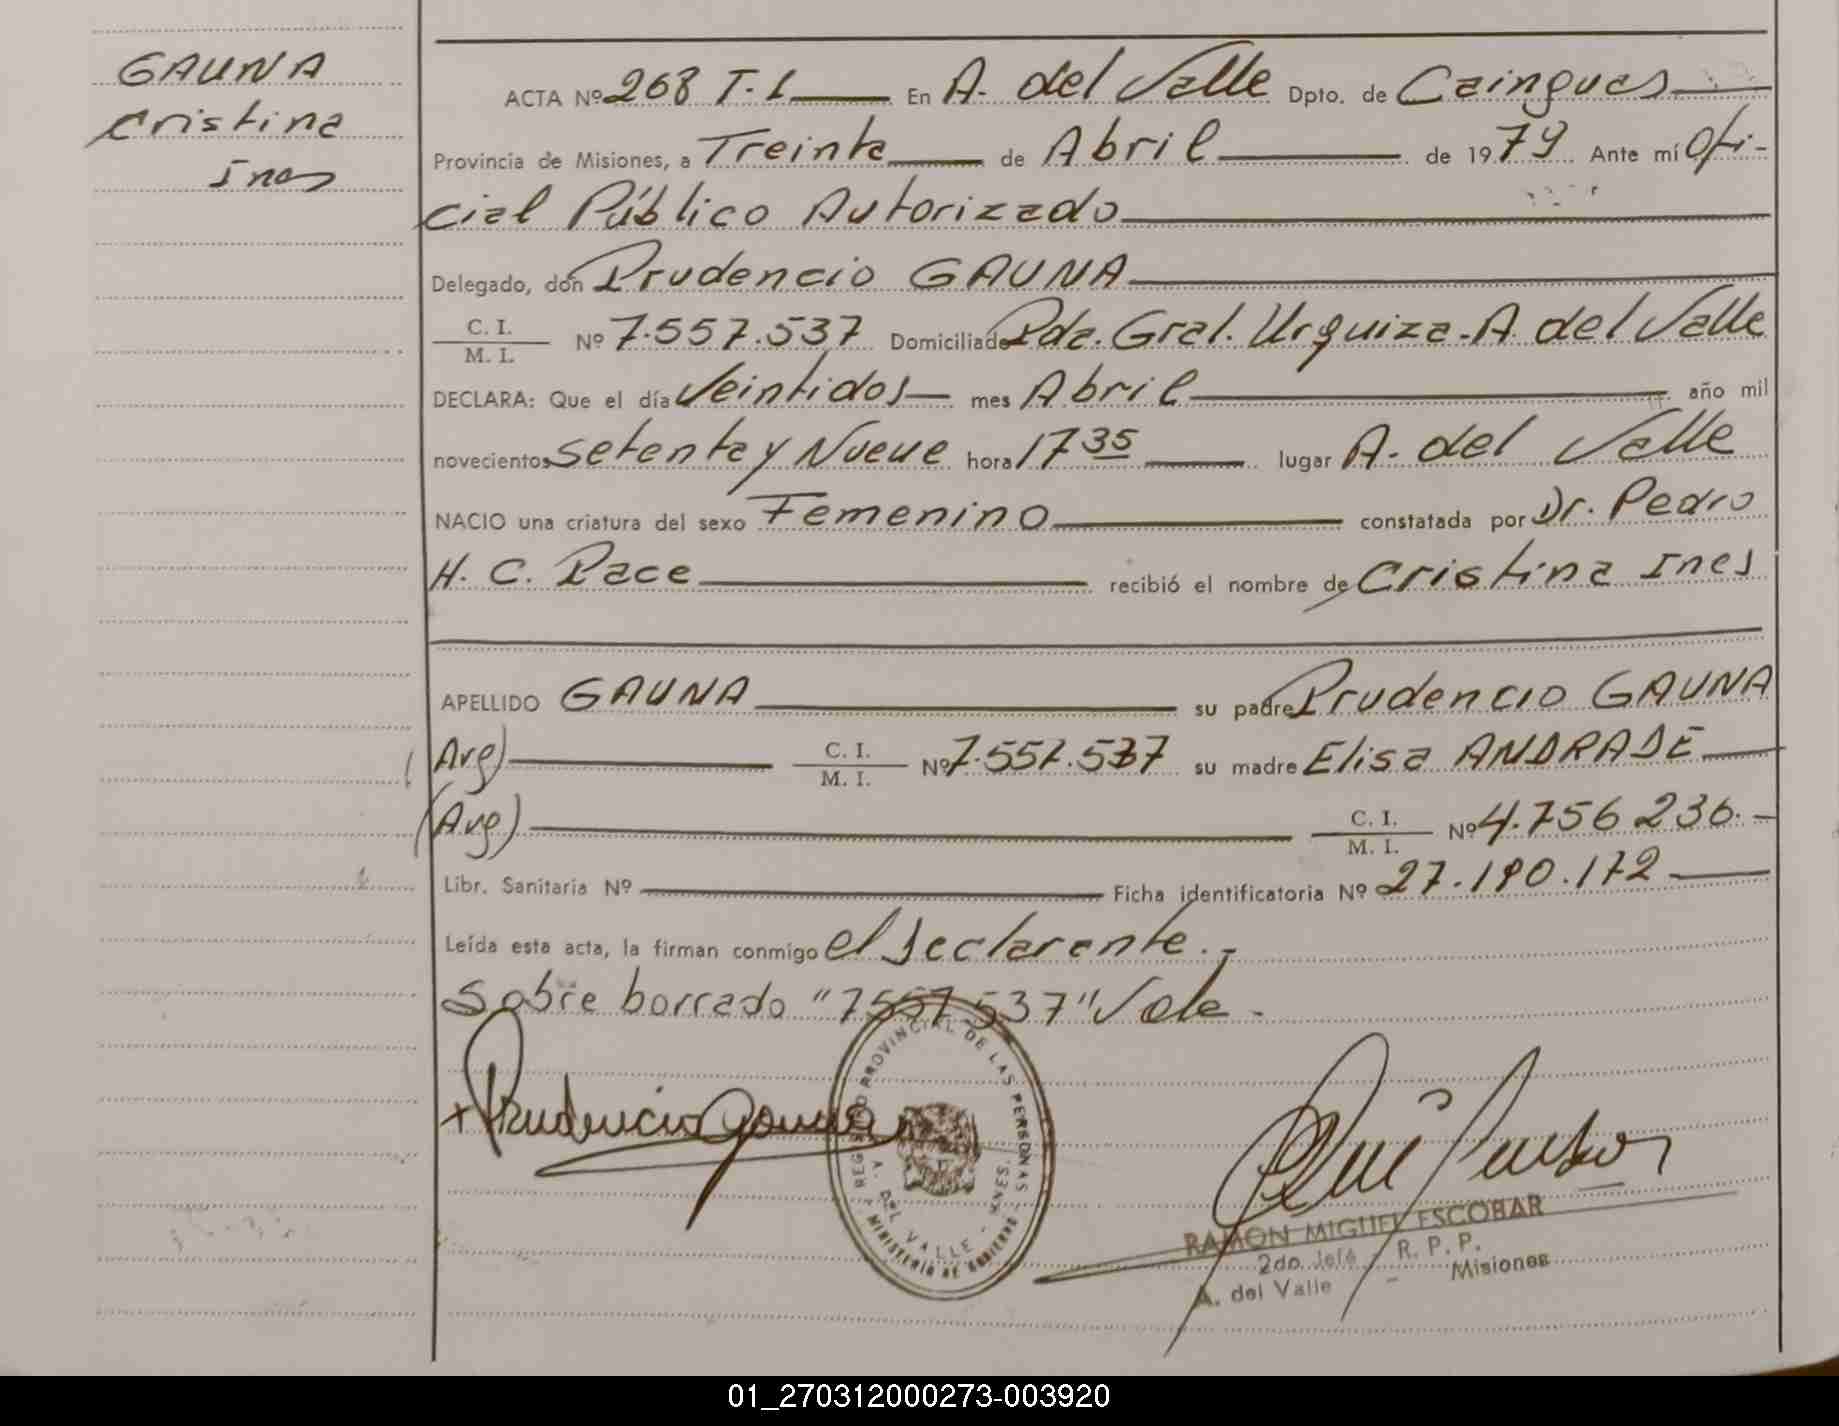 GAUNA
Cristina
Ines
ACTA Nº 268 T. 1 En A. del Valle Dpto. de Cainguas
Provincia de Misiones, a Treinta de Abril de 1979 Ante mí Ofi-
cial Público Autorizado
Delegado, don Prudencio GAUNA
C. I.
M. I. Nº 7.557.537 Domiciliado Pda. Gral. Urquiza - A. del Valle
DECLARA: Que el día Veintidos mes Abril año mil
novecientos setenta y Nueve hora 17 35 lugar A. del Valle
NACIO una criatura del sexo Femenino constatada por Dr. Pedro
H. C. Pace recibió el nombre de Cristina Ines
APELLIDO GAUNA su padre Prudencio GAUNA
(Arg) C. I.
M. I. Nº 7.557.537 su madre Elisa ANDRADE
(Arg) C. I.
M. I. Nº 4.756.236.-
Libr. Sanitaria Nº Ficha identificatoria Nº 27.190.172
Leída esta acta, la firman conmigo el declarante.-
Sobre borrado "7557537" Vale -
x Prudencio Gauna
REGISTRO PROVINCIAL DE LAS PERSONAS
A. DEL VALLE - MNES.
MINISTERIO DE GOBIERNO
RAMON MIGUEL ESCOBAR
2do. Jefe R. P. P.
A. del Valle - Misiones
01_270312000273-003920